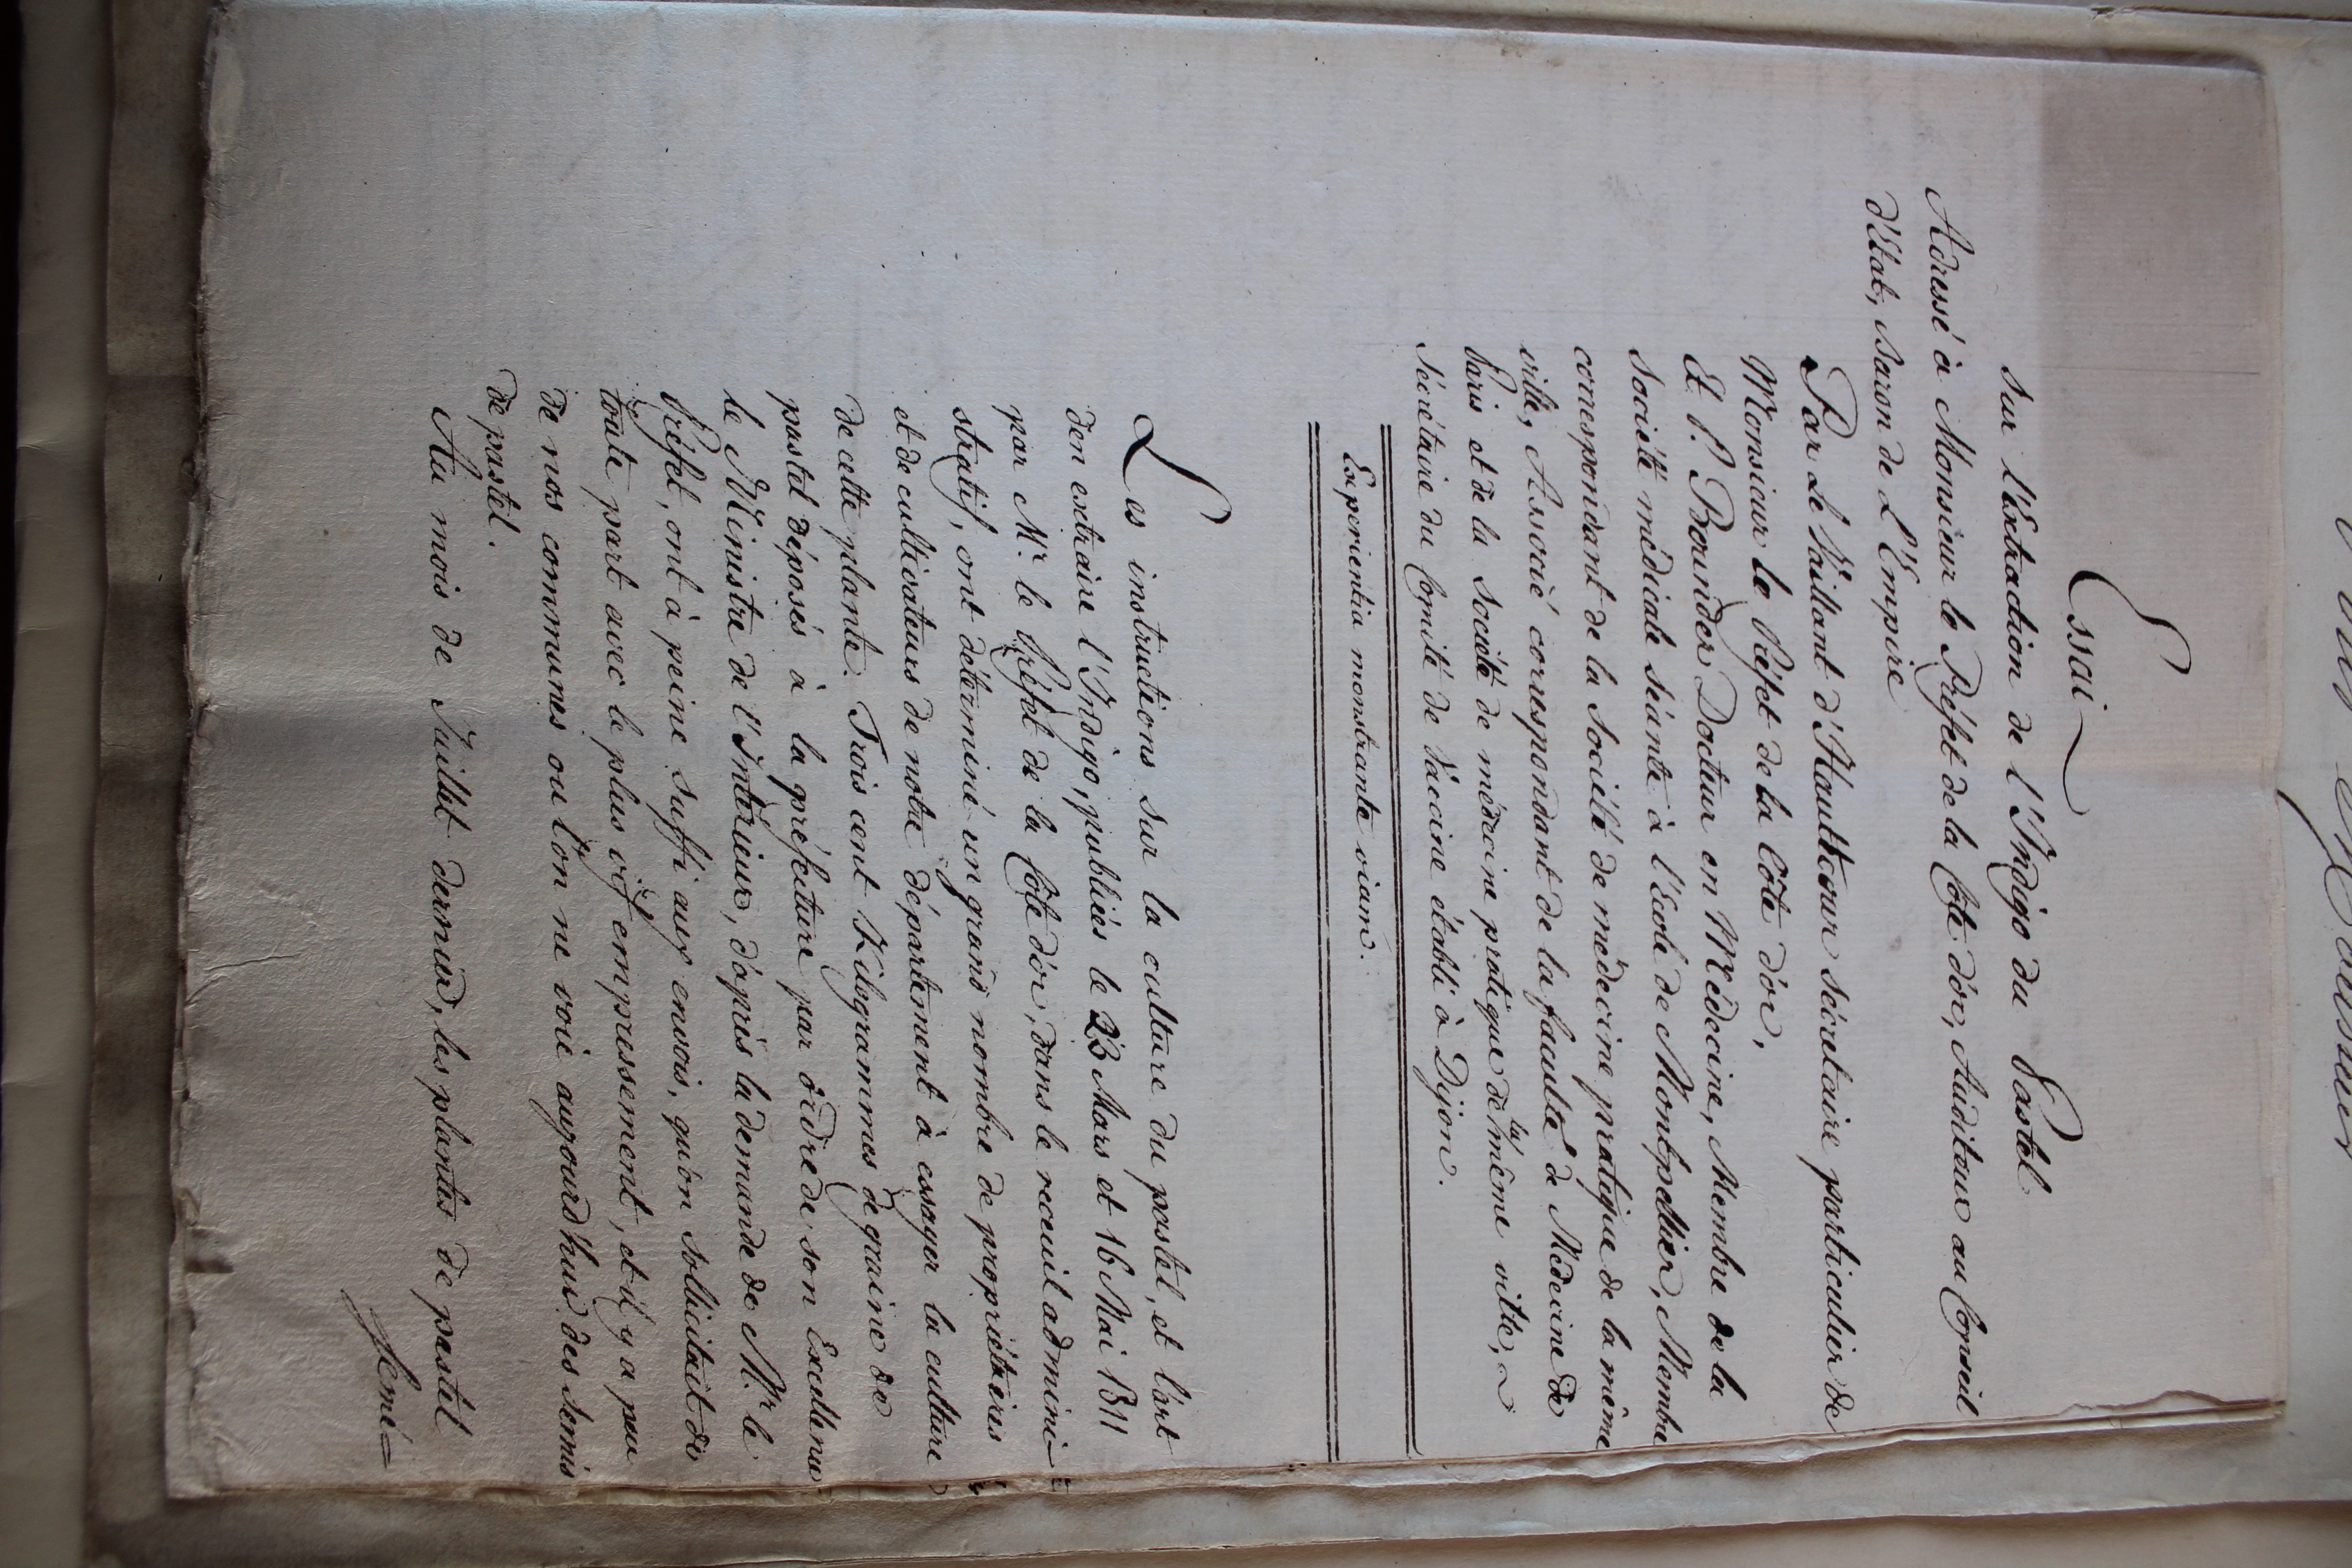 Essai
sur l'Extraction de l'Indigo du Pastel
Adressé à Monsieur le Préfet de la Côte d'or, Auditeur au Conseil
d'état, Baron de L'Empire
Par Le Vaillant d'Hauttecour sécretaire particulier de
Monsieur le Préfet de la Côte d'or,
Et P. Docteur en Médecine, Membre de la
société médicale séante à l'Ecole de Montpellier, Membre
correspondant de la société de médecine pratique de la même
ville, Associé correspondant de la faculté de Médecine de
Paris et de la société de médecine pratique de la même ville,
Sécrétaire du Comité de Vaccine établi à Dijon.
Experientia monstrante viam.
Les instructions sur la culture du pastel, et l'art
d'en extraire l'Indigo, publiées le 23 Mars et 16 Mai 1811
par Mr. le Préfet de la Côte d'or, dans le receuil admini-
stratif, ont déterminé un grand nombre de propriétaires
et de cultivateurs de notre département à essayer la culture
de cette plante. Trois cent Kilogrammes de graine de
pastel déposés à la préfecture par ordre de son Excellence
le Ministre de l'Intérieur, d'après la demande de Mr. le
Préfet, ont à peine suffi aux envois, qu'on sollicitait de
toute part avec le plus vif empressement, et il y a peu
de nos communes ou l'on ne voie aujourd'hui des semis
de pastel.
Au mois de Juillet dernier, les plantes de pastel
semé=